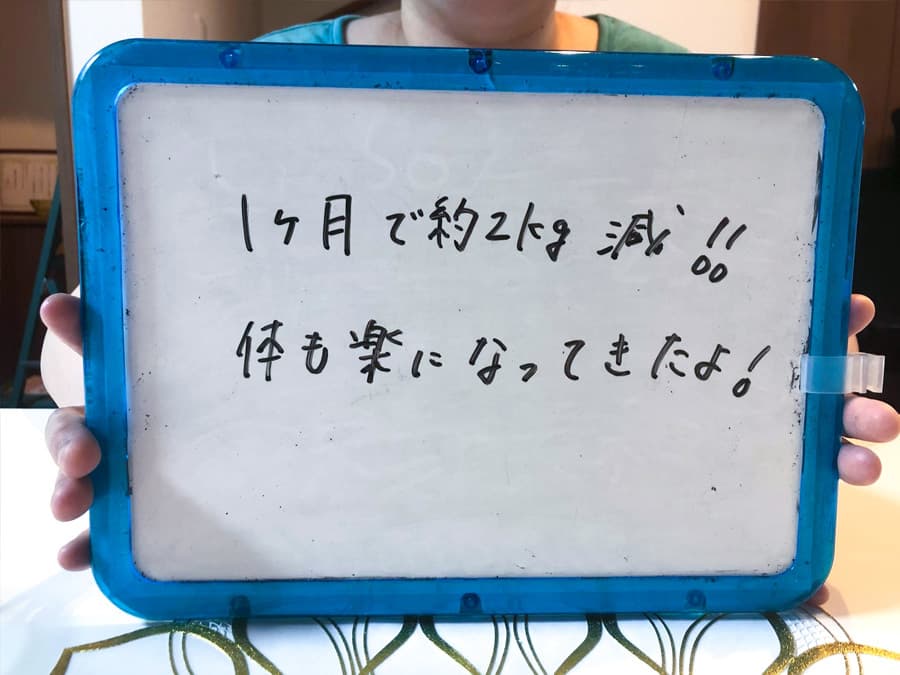 1ヶ月で約2kg減!!
体も楽になってきたよ!